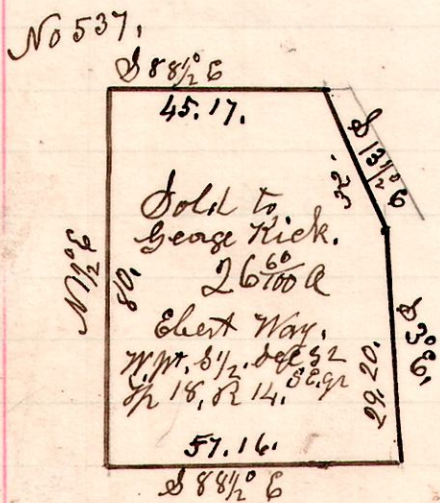 No 537.
S 88 1/2° E
45.17.
S 13 1/2° E
32.
Sold to
George Kick.
26 60/100 A
N 1/2° E
80.
Ebert Way.
W. pt. S 1/2. S 32
Tp 18, R 14. S E. qr
S 3° E.
29.20.
57.16.
S 88 1/2° E